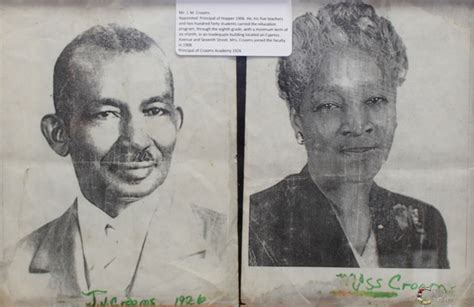 Mr. J. W. Crooms
Appointed Principal of Hopper 1906. He, his five teachers
and two hundred forty students carried the education
program, through the eighth grade, with a minimum term of
six month, in an inadequate building located on Cypress
Avenue and Seventh Street. Mrs. Crooms joined the faculty
in 1908
Principal of Crooms Academy 1926
J.N. Crooms 1926
Miss Crooms